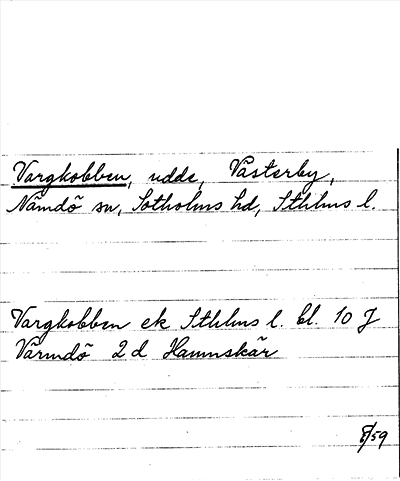 Vargkobben, udde, Västerby,
Nämdö sn, Sotholms hd, Sthlms l.
Vargkobben ek Sthlms l. bl. 10 J
Värmdö 2 d Hamnskär
/59